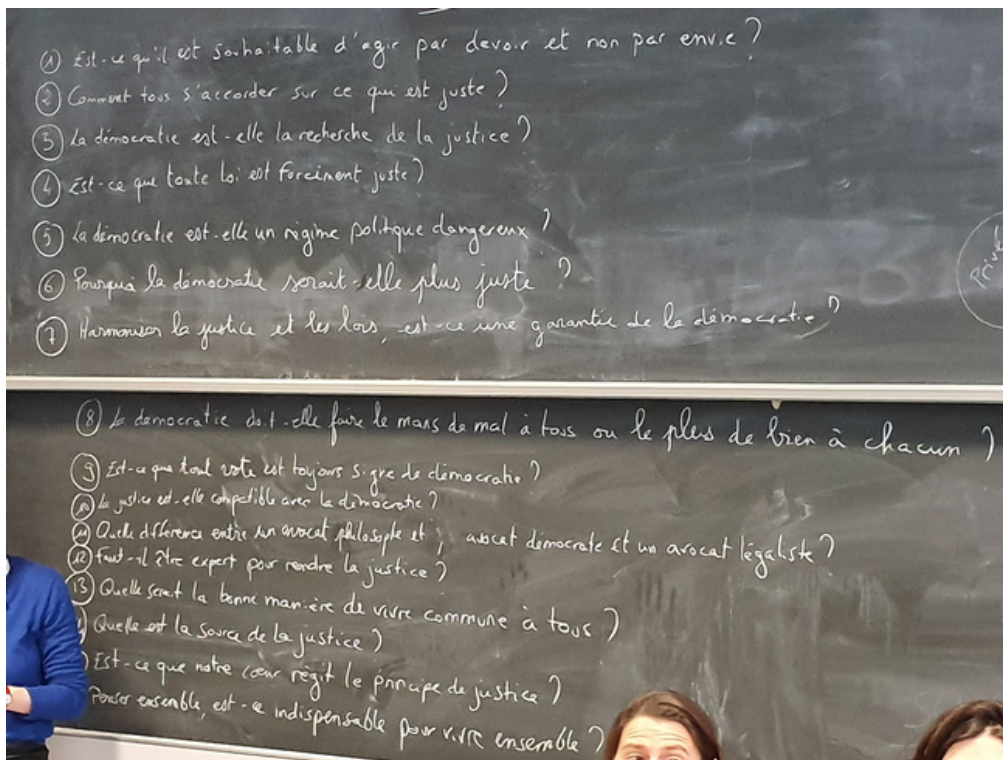 ① Est-ce qu'il est souhaitable d'agir par devoir et non par envie ?
② Comment tous s'accorder sur ce qui est juste ?
③ La démocratie est-elle la recherche de la justice ?
④ Est-ce que toute loi est forcément juste ?
⑤ La démocratie est-elle un régime politique dangereux ?
⑥ Pourquoi la démocratie serait-elle plus juste ?
⑦ Harmoniser la justice et les lois, est-ce une garantie de la démocratie ?
Privé
⑧ La démocratie doit-elle faire le moins de mal à tous ou le plus de bien à chacun ?
⑨ Est-ce que tout vote est toujours signe de démocratie ?
⑩ La justice est-elle compatible avec la démocratie ?
⑪ Quelle différence entre un avocat philosophe et, avocat démocrate et un avocat légaliste ?
⑫ Faut-il être expert pour rendre la justice ?
⑬ Quelle serait la bonne manière de vivre commune à tous ?
Quelle est la source de la justice ?
Est-ce que notre cœur régit le principe de justice ?
Penser ensemble, est-ce indispensable pour vivre ensemble ?